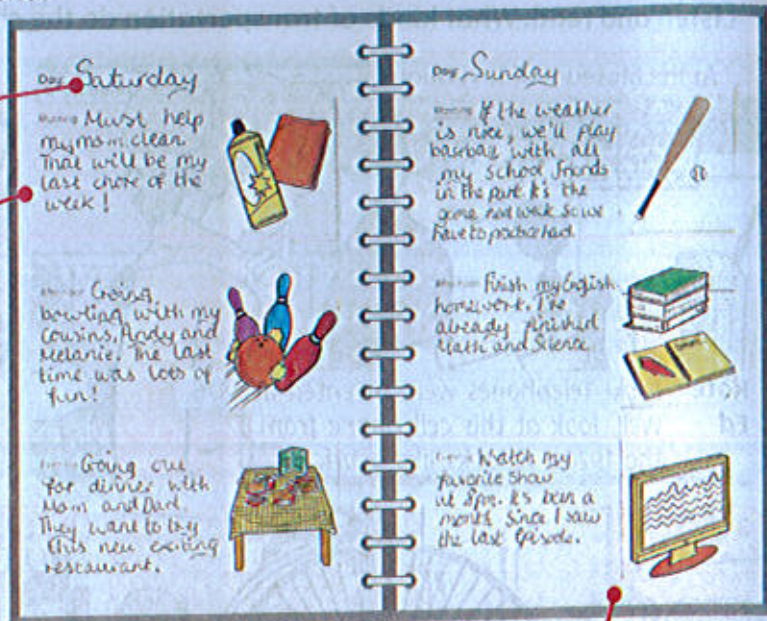 Day Saturday
Morning Must help
my mom clean.
That will be my
last chore of the
week!
Afternoon Going
bowling with my
cousins, Andy and
Melanie. The last
time was lots of
fun!
Evening Going out
for dinner with
Mom and Dad.
They want to try
this new exciting
restaurant.
Day Sunday
Morning If the weather
is nice, we'll play
baseball with all
my school friends
in the park. It's the
game next week so we
have to practice hard.
Afternoon Finish my English
homework. I've
already finished
Math and Science.
Evening Watch my
favorite show
at 8pm. It's been a
month since I saw
the last episode.